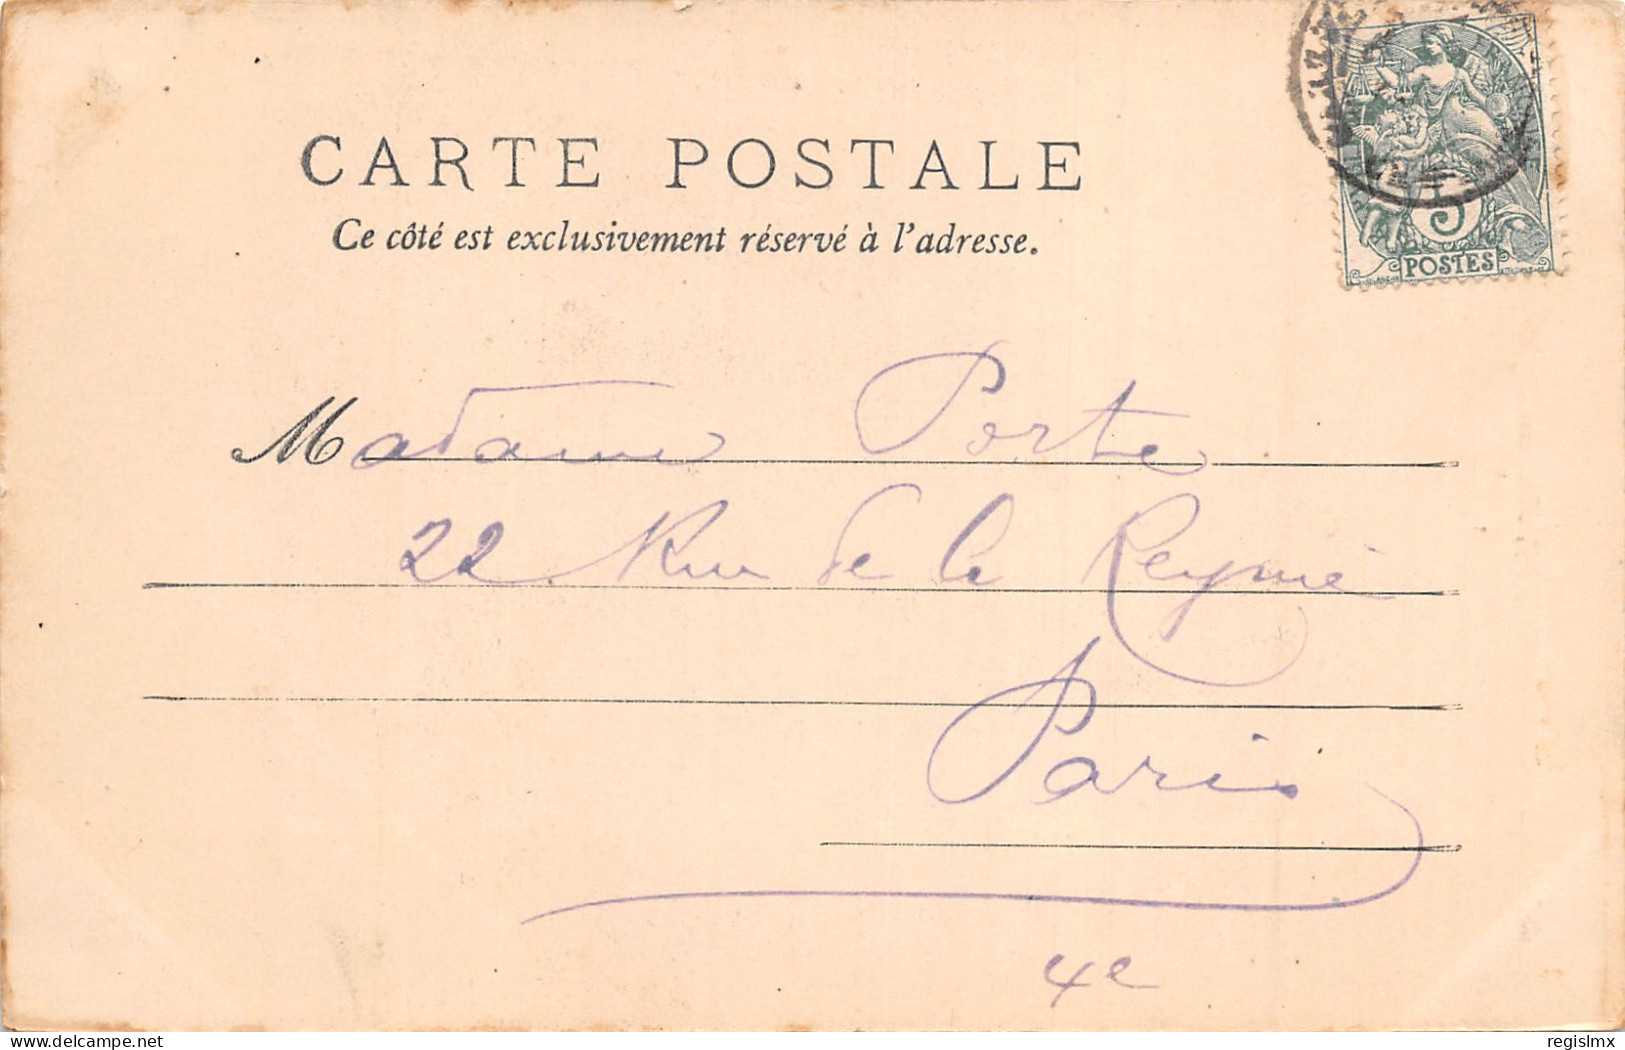 CARTE POSTALE
Ce côté est exclusivement réservé à l'adresse.
5
POSTES
Madame Porte
22 Rue de la Reynie
Paris
4e
delcampe.net
regislmx